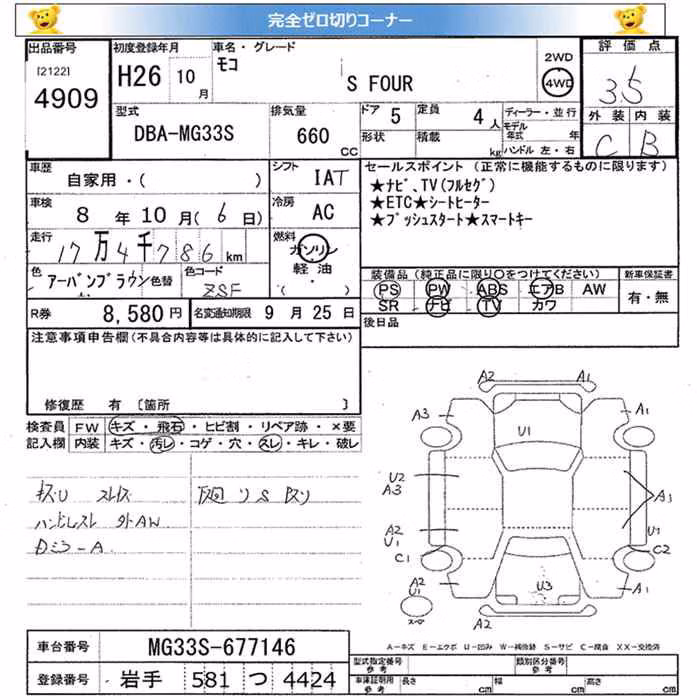 完全ゼロ切りコーナー
出品番号
[2122]
4909
初度登録年月
H26 10月
車名・グレード
モコ
S FOUR
2WD
4WD
評価点
3.5
外装 内装
C B
型式
DBA-MG33S
排気量
660 CC
ドア 5
定員 4人
形状
積載 kg
ディーラー・並行
モデル年式 年
ハンドル 左・右
車歴
自家用・( )
シフト
IAT
車検
8年10月(6日)
冷房
AC
走行
17万4千786km
燃料
ガソリン
軽油
( ・ )
色
アーバンブラウン
色替
色コード
ZSF
R券
8,580円
名変通知期限 9月25日
セールスポイント (正常に機能するものに限ります)
★ナビ、TV(フルセグ)
★ETC★シートヒーター
★プッシュスタート★スマートキー
装備品(純正品に限り○をつけてください)
新車保証書
PS PW ABS エアB AW
SR ナビ TV カワ
有・無
後日品
注意事項申告欄(不具合内容等は具体的に記入して下さい)
修復歴 有 [箇所 ]
検査員記入欄
FW キズ・飛石・ヒビ割・リペア跡・×要
内装 キズ・汚レ・コゲ・穴・スレ・キレ・破レ
外AW
Dミラ-A
A2 A1
A3 A1
U1
U2
A3
A3
A2
U1
U1
C1
C2
A2
U1
U3
A1
A2
スペア
A-キズ E-エクボ U-凹み W-補修跡 S-サビ C-腐食 XX-交換済
車台番号
MG33S-677146
登録番号
岩手 581 つ 4424
型式指定番号
参考
類別区分番号
参考
車庫証明用
参考
長さ cm
幅 cm
高さ cm